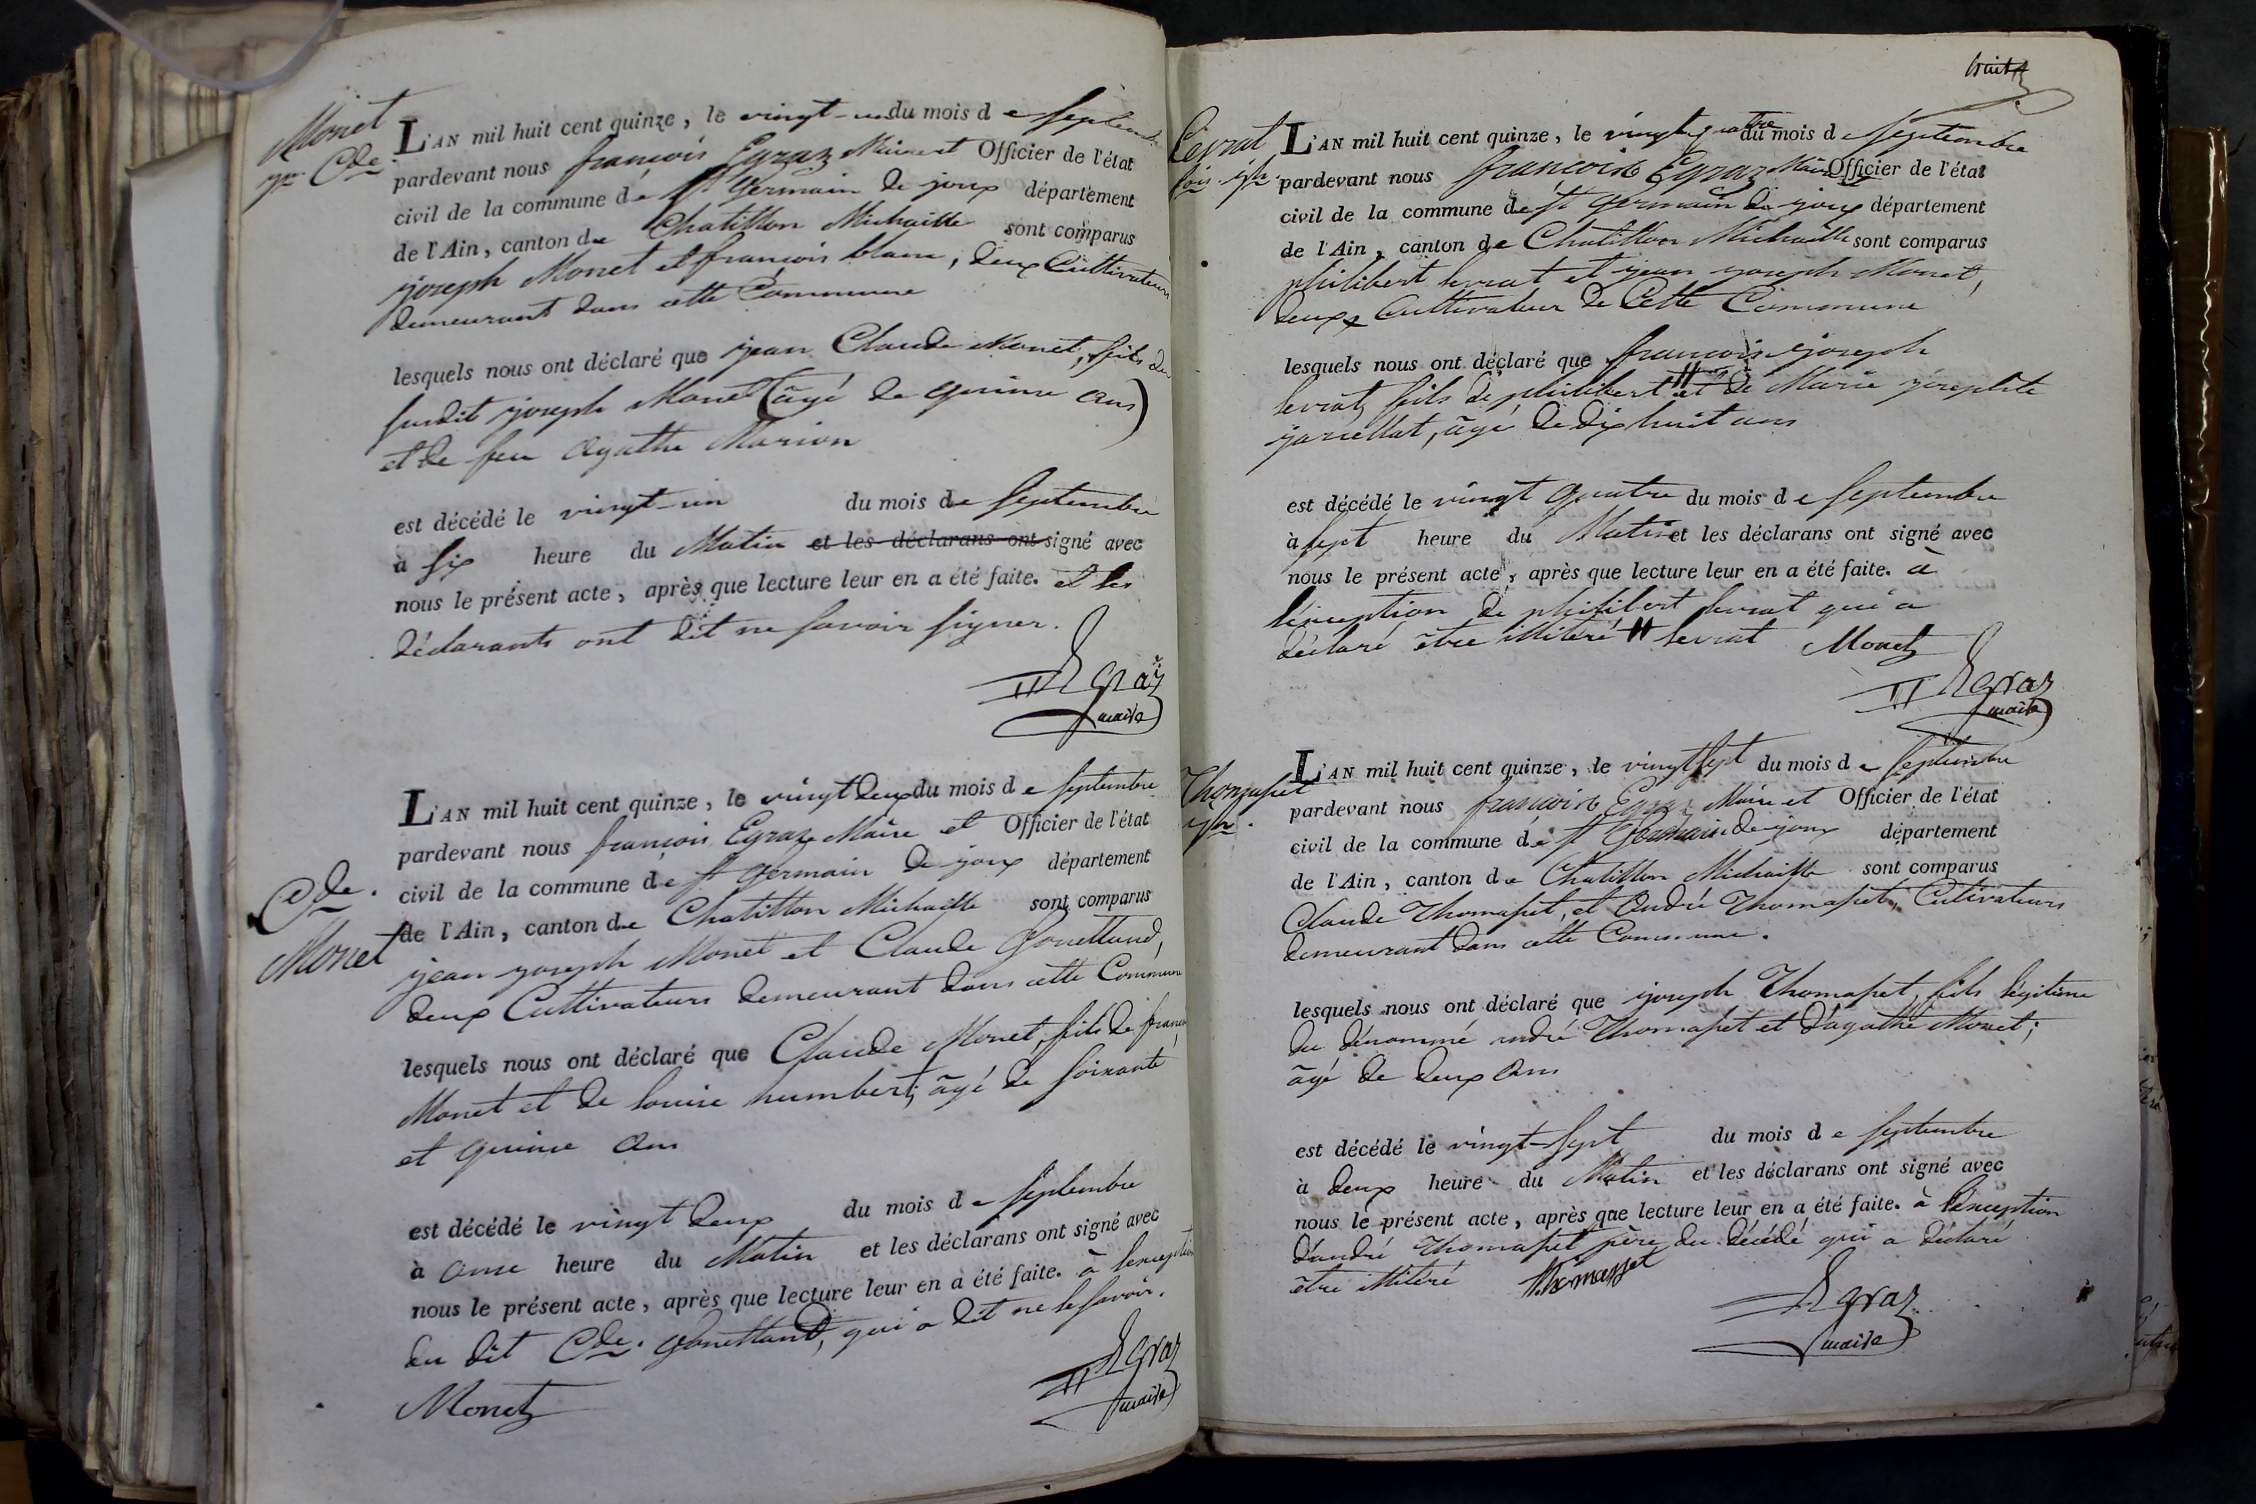 Monet
jn Cde
L'AN mil huit cent quinze, le vingt-un du mois de Septembre
pardevant nous françois Egraz Maire et Officier de l'état
civil de la commune de St germain de joux département
de l'Ain, canton de Chatillon Michaille sont comparus
joseph Monet et françois blanc, deux Cultivateurs
demeurant dans cette Commune
lesquels nous ont déclaré que jean Claude Monet, fils du
susdit joseph Monet (âgé de quinze ans)
et de feu agathe Marion
est décédé le vingt-un du mois de Septembre
à six heure du Matin et les déclarans ont signé avec
nous le présent acte, après que lecture leur en a été faite. et les
déclarants ont dit ne savoir signer.
Egraz
maire
Cde.
Monet
L'AN mil huit cent quinze, le vingt deux du mois de septembre
pardevant nous françois Egraz Maire et Officier de l'état
civil de la commune de St germain de joux département
de l'Ain, canton de Chatillon Michaille sont comparus
jean joseph Monet et Claude Gonettand,
deux Cultivateurs demeurant dans cette Commune
lesquels nous ont déclaré que Claude Monet, fils de franç
Monet et de louise humbert, âgé de soixante
et quinze ans
est décédé le vingt deux du mois de septembre
à onze heure du Matin et les déclarans ont signé avec
nous le présent acte, après que lecture leur en a été faite. à lexception
du dit Cde. Gonettand, qui a dit ne le savoir.
Monet
Egraz
maire
huit
Levrat
fois. jh.
L'AN mil huit cent quinze, le vingt quatre du mois de Septembre
pardevant nous francois Egraz Maire et Officier de l'état
civil de la commune de St germain de joux département
de l'Ain, canton de Chatillon Michaille sont comparus
philibert levrat et jean joseph Monet,
deux Cultivateur de Cette Commune
lesquels nous ont déclaré que francois joseph
levrat, fils de philibert et de Marie josephte
jarcellat, âgé de dix huit ans
est décédé le vingt quatre du mois de septembre
à sept heure du Matin et les déclarans ont signé avec
nous le présent acte, après que lecture leur en a été faite. à
léxception de philibert levrat qui a
déclaré être illitéré # levrat Monet
Egraz
maire
Thomasset
jh.
L'AN mil huit cent quinze, le vingt sept du mois de septembre
pardevant nous francois Egraz Maire et Officier de l'état
civil de la commune de St Germain de joux département
de l'Ain, canton de Chatillon Michaille sont comparus
Claude Thomasset, et André Thomasset, Cultivateurs
demeurant dans cette Commune.
lesquels nous ont déclaré que joseph Thomasset fils légitime
du dénommé andré Thomasset et d'agathe Monet;
âgé de deux ans
est décédé le vingt-sept du mois de septembre
à deux heure du Matin et les déclarans ont signé avec
nous le présent acte, après que lecture leur en a été faite. à léxception
d'andré Thomasset père du décédé qui a déclaré
être illitéré Thomasset
Egraz
maire